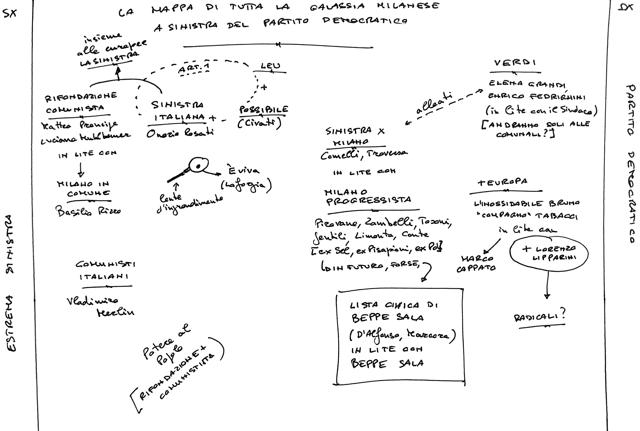 SX
LA MAPPA DI TUTTA LA GALASSIA MILANESE
A SINISTRA DEL PARTITO DEMOCRATICO
DX
insieme
alle europee
LA SINISTRA
ART. 1
LEU
+
RIFONDAZIONE
COMUNISTA
Matteo Prencipe
Luciano Muhlbauer
IN LITE CON
MILANO IN
COMUNE
Basilio Rizzo
SINISTRA
ITALIANA +
Onorio Rosati
POSSIBILE
(Civati)
lente
d'ingrandimento
È viva
(Laforgia)
COMUNISTI
ITALIANI
Vladimiro
Merlin
Potere al
Popolo
[RIFONDAZIONE +
COMUNISTI]
ESTREMA SINISTRA
alleati
SINISTRA X
MILANO
Comelli, Traversa
IN LITE CON
MILANO
PROGRESSISTA
Pirovano, Zambelli, Tosoni,
Gentili, Limonta, Conte
[ex Sel, ex Pisapiani, ex Pd]
(DIN FUTURO, FORSE,
LISTA CIVICA DI
BEPPE SALA
(D'Alfonso, Marcora)
IN LITE CON
BEPPE SALA
VERDI
ELENA GRANDI
ENRICO FEDRIGHINI
(in lite con il Sindaco)
[ANDRANNO SOLI ALLE
COMUNALI?]
+EUROPA
L'INOSSIDABILE BRUNO
"COMPAGNO" TABACCI
in lite con
MARCO
CAPPATO
+ LORENZO
LIPPARINI
RADICALI?
PARTITO DEMOCRATICO